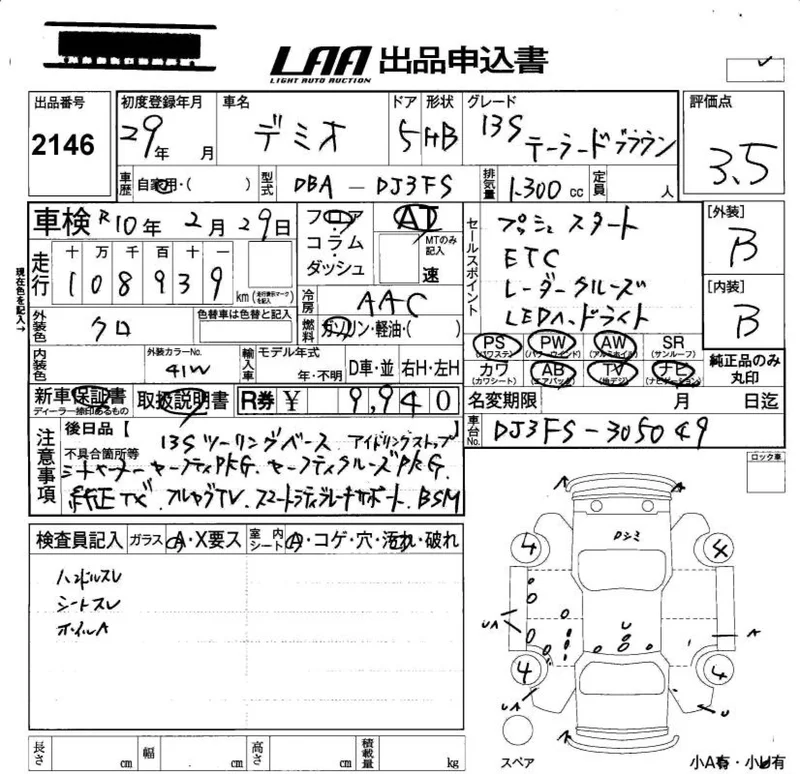 LAA 出品申込書
LIGHT AUTO AUCTION
出品番号 初度登録年月 車名 ドア 形状 グレード 評価点
2146 29年 月 デミオ 5 HB 13S テーラードブラウン 3.5
車歴 自家用・( ) 型式 DBA-DJ3FS 排気量 1.300cc 定員 人
車検 R10年 2月 29日 フロア AT セールスポイント プッシュスタート [外装]
コラム・ MTのみ記入 ETC B
走行 十 万 千 百 十 一 ダッシュ 速 レーダークルーズ [内装]
現在色を記入→ 108939 km (走行距離マークを記入) 冷房 AAC LEDヘッドライト B
外装色 クロ 色替車は色替と記入 燃料 ガソリン・軽油・( ) PS (パワステ) PW (パワーウインド) AW (アルミホイル) SR (サンルーフ)
内装色 外装カラーNo. 41W 輸入車 モデル年式 年・不明 D車・並 右H・左H カワ (カワシート) AB (エアバック) TV (地デジ) ナビ (ナビゲーション) 純正品のみ丸印
新車保証書 ディーラー捺印あるもの 取扱説明書 R券 ¥ 9,940 名変期限 月 日迄
車台No. DJ3FS-305049
注意事項 後日品【 】 13Sツーリングベース アイドリングストップ ロック車
不具合箇所等
純正TV.フルセグTV.スマートブレーキサポート.BSM
検査員記入 ガラス A・X要ス 室内シート A・コゲ・穴・汚れ・破れ
ハンドルスレ
シートスレ
ホイルA
4 4
UA A
4 4
UA U
長さ cm 幅 cm 高さ cm 積載量 kg スペア 小A有・小U有